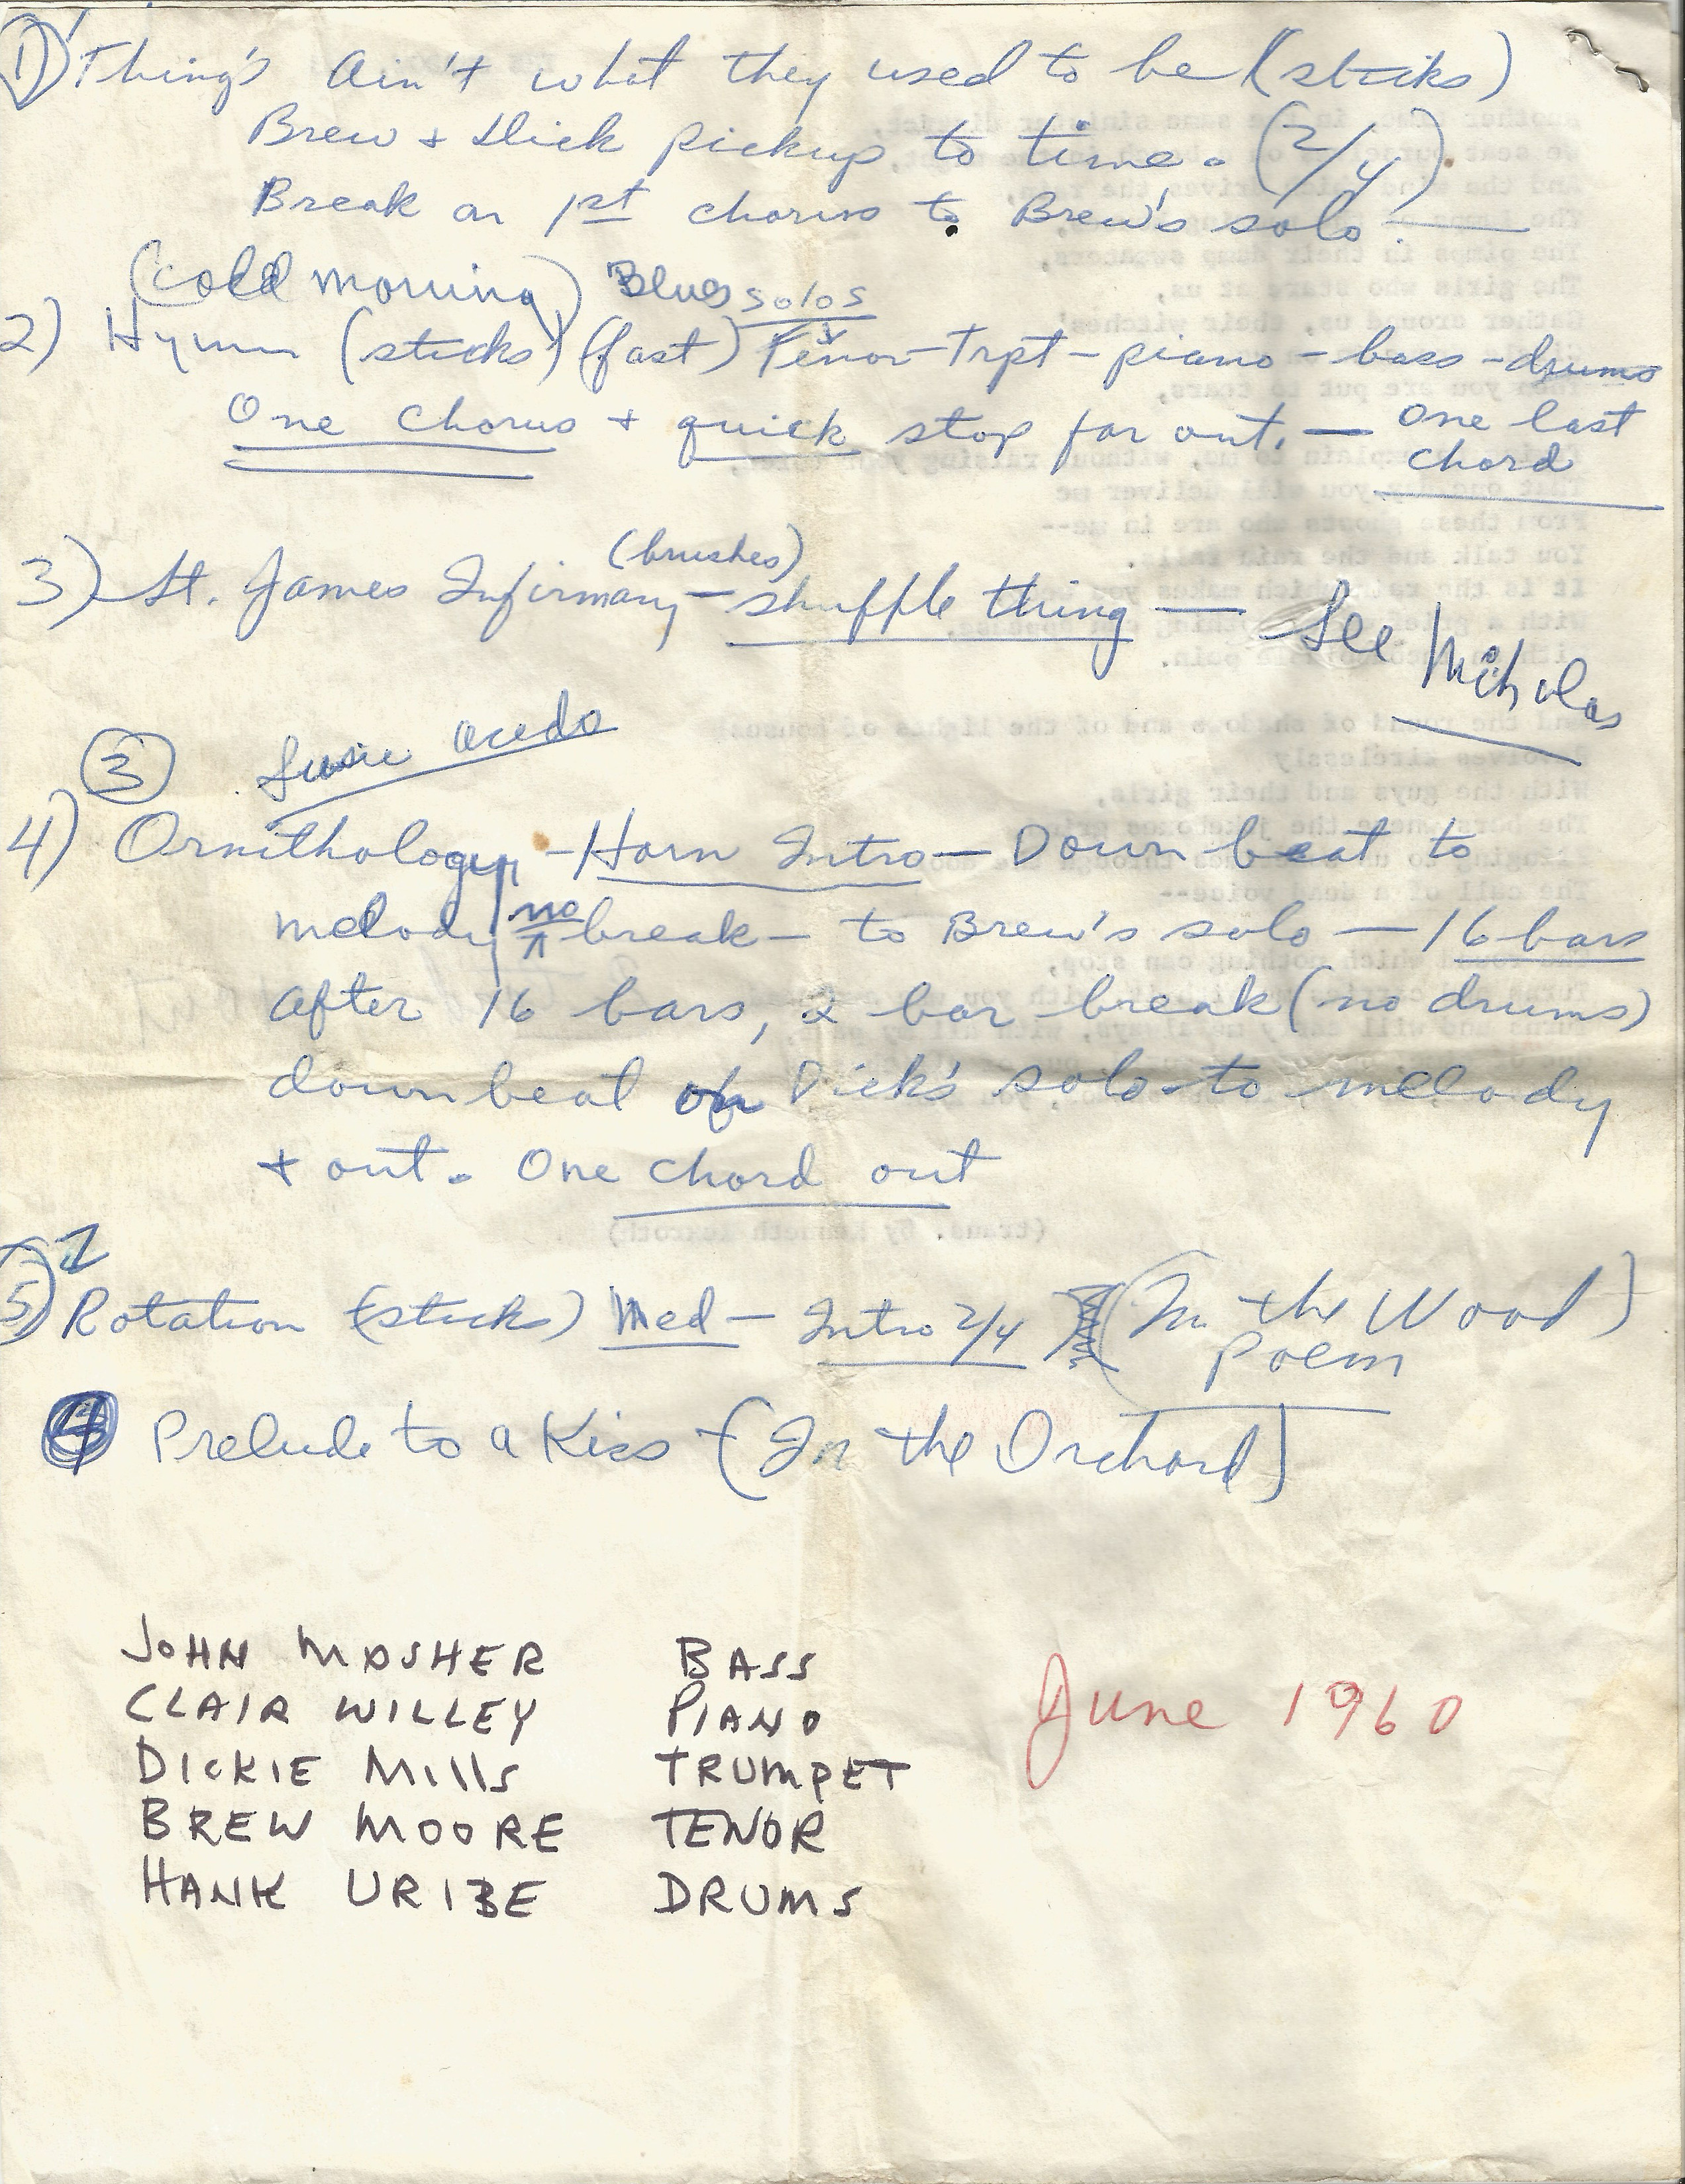 1) Thing's Ain't what they used to be (sticks)
Brew + Dick pickup to time. (2/4).
Break on 1st chorus to Brew's solo.
(cold morning) Blues solos
2) Hymn (sticks) (fast) Tenor - Trpt - piano - bass - drums
One Chorus + quick stop for out. — one last
chord
(brushes)
3) St. James Infirmary - shuffle thing — See Nicholas
3 Susie
4) Ornithology - Horn Intro - Down beat to
melody no break - to Brew's solo - 16 bars
after 16 bars, 2 bar break (no drums)
down beat of Dick's solo - to melody
+ out. One chord out
2
5) Rotation (sticks) Med - Intro 2/4 (In the Wood)
Poem
4 Prelude to a Kiss - (In the Orchard)
JOHN MOSHER BASS
CLAIR WILLEY PIANO
DICKIE Mills TRUMPET
BREW MOORE TENOR
HANK URIBE DRUMS
June 1960
(trans. by Kenneth Rexroth)